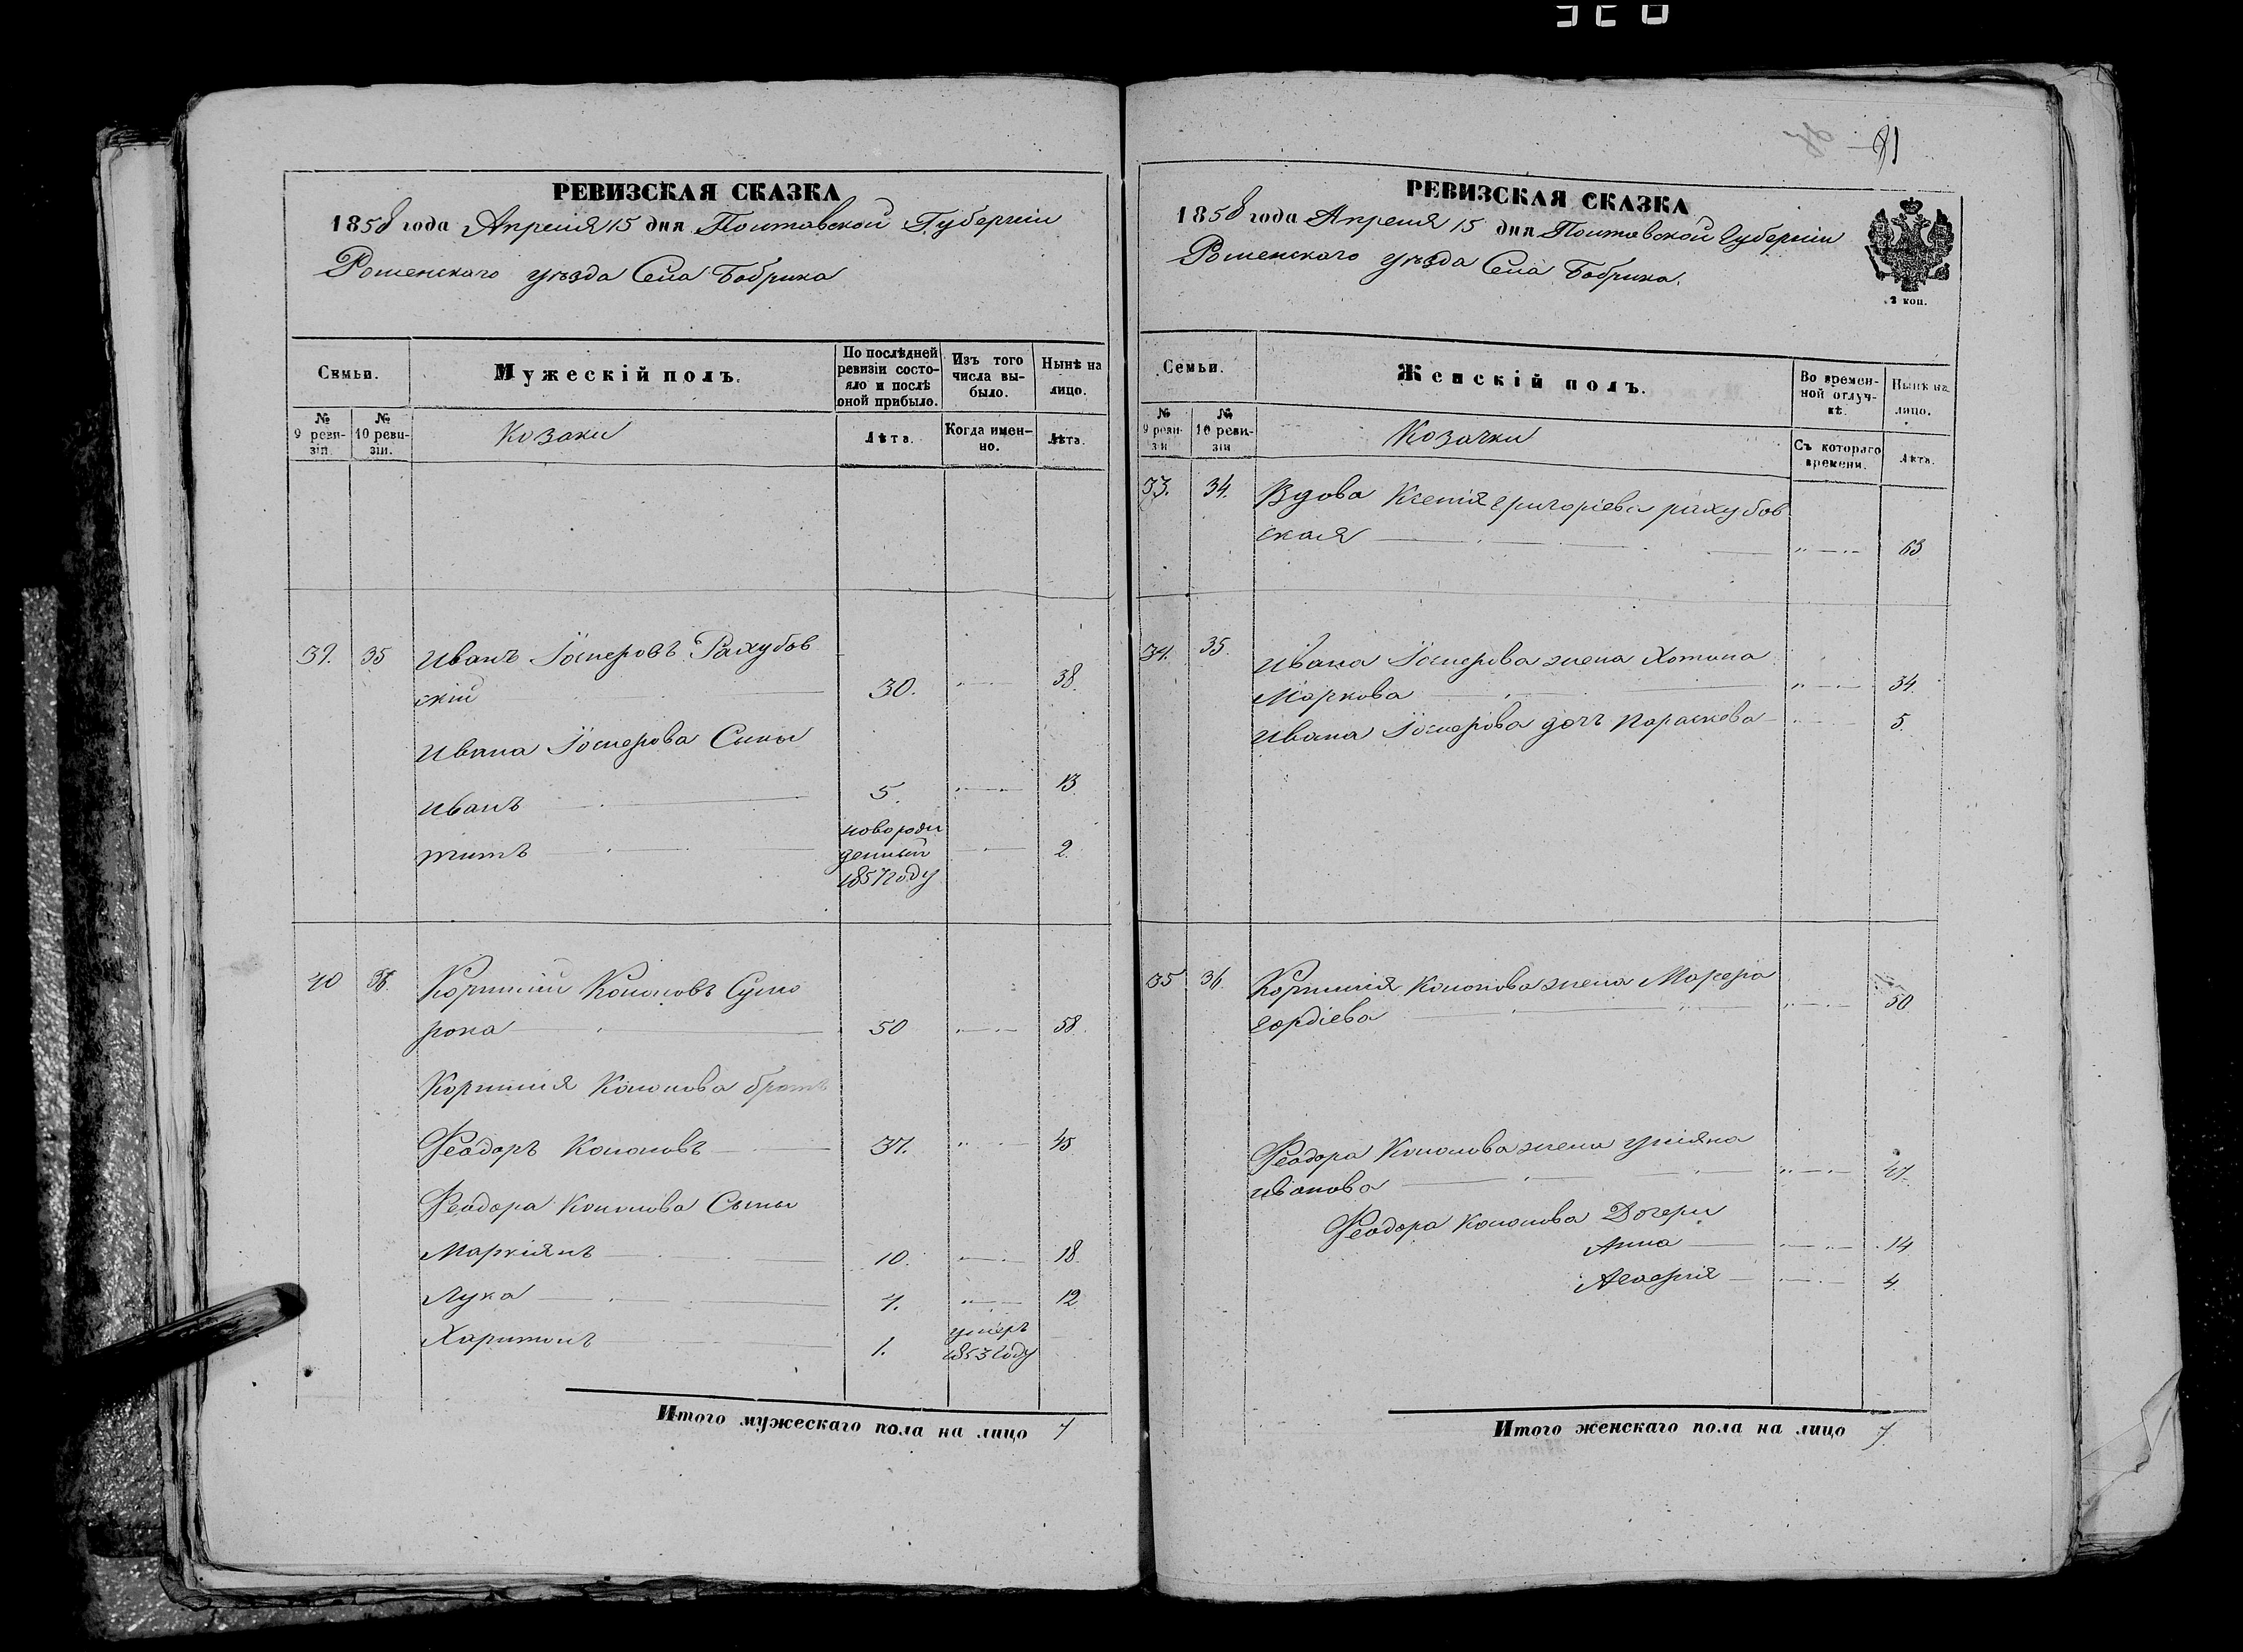 81
РЕВИЗСКАЯ СКАЗКА
1858 года Апреля 15 дня Полтавской Губерніи
Роменскаго уезда Села Бобрика
Семьи.
Мужескій полъ.
По послѣдней ревизіи состояло и послѣ оной прибыло.
Изъ того числа выбыло.
Нынѣ на лицо.
№ 9 ревизіи.
№ 10 ревизіи.
Козаки
Лѣта.
Когда именно.
Лѣта.
35 Иванъ Іосиеровъ Рахубов
скій 30. 38.
Ивана Іосиерова Сыны
Иванъ 5. 13
Титъ
новорож
денный
1857 году
2.
40 36. Корнилій Кононовъ Сумо
рока 50 58.
Корнилія Кононова братъ
Феодоръ Кононовъ 37. 45
Феодора Кононова Сыны
Маркіянъ 10. 18.
Лука 4. 12
Харитонъ 1. умеръ
1853 году
Итого мужескаго пола на лицо 7
РЕВИЗСКАЯ СКАЗКА
1858 года Апреля 15 дня Полтавской Губерніи
Роменскаго уезда Села Бобрика.
2 коп.
Семьи.
Женскій полъ.
Во временной отлучкѣ.
Нынѣ на лицо.
№ 9 ревизіи
№ 10 ревизіи
Козачки
Съ котораго времени.
Лѣта.
33. 34. Вдова Ксенія Григоріева Рахубов
ская 63
34. 35. Ивана Іосиерова жена Хотина
Маркова 34.
Ивана Іосиерова дочъ Параскева 5.
35 36. Корнилія Кононова жена Марфа
Гордіева 50
Феодора Кононова жена Уліяна
Иванова 47.
Феодора Кононова Дочери
Анна 14
4.
Итого женскаго пола на лицо 7.